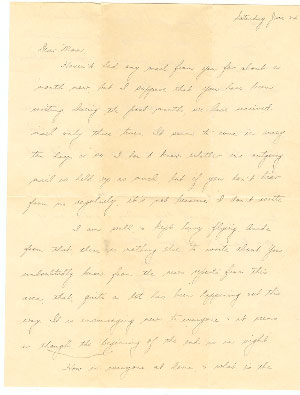 Saturday June 24
Dear Mom,
Haven't had any mail from you for about a
month now but I suppose that you have been
writing during the past month, we have received
mail only three times. It seems to come in every
ten days or so. I don't know whether our outgoing
mail is held up as much but if you don't hear
from me regularly, it's not because I don't write.
I am still kept busy flying
from that there is nothing else to write about. You
undoubtedly know from the news reports from this
area, that quite a lot has been happening out this
way. It is encouraging news to everyone & it seems
as though the beginning of the end is in sight
How is everyone at home & what is the